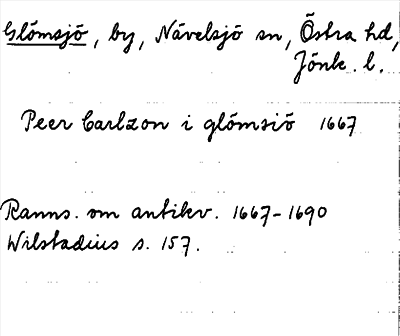 Glömsjö, by, Nävelsjö sn, Östra hd,
Jönk. l.
Peer Carlzon i glömsiö 1667
Ranns. om antikv. 1667-1690
Wilstadius s. 157.